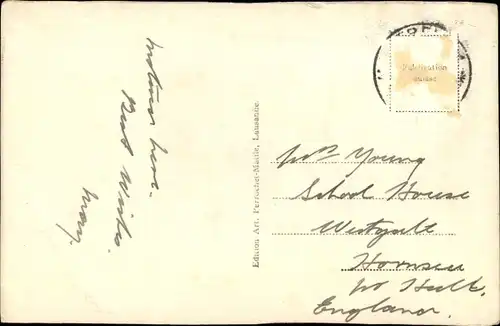 Best Wishes
May.
Edition Art. Perrochet-Matile, Lausanne.
Fabrication
suisse
Mrs Young
School House
Westgate
Hornsea
nr Hull.
England.